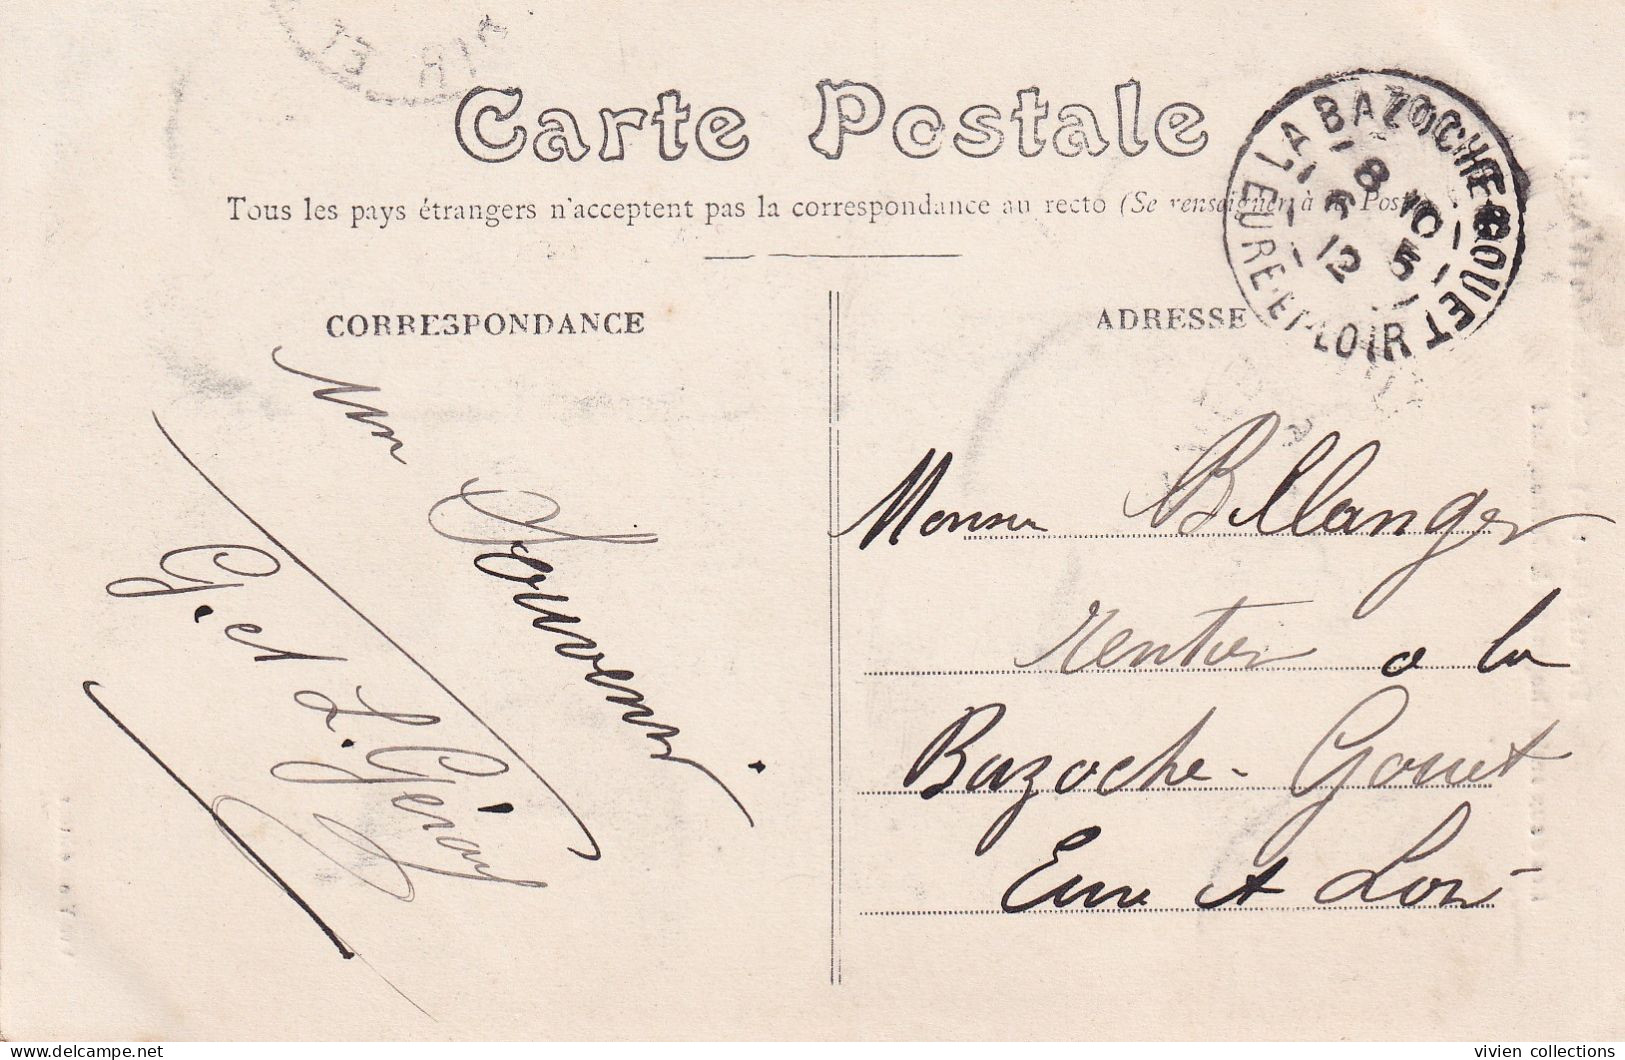 Carte Postale
Tous les pays étrangers n'acceptent pas la correspondance au recto (Se renseigner à la Poste)
CORRESPONDANCE
ADRESSE
LA BAZOCHE-GOUET
EURE-ET-LOIR
8 10
6 5
12
un
Souvenir.
G. et L. Géray
Monsieur Bellanger
rentier a la
Bazoche-Gouet
Eure et Loir
vivien collections